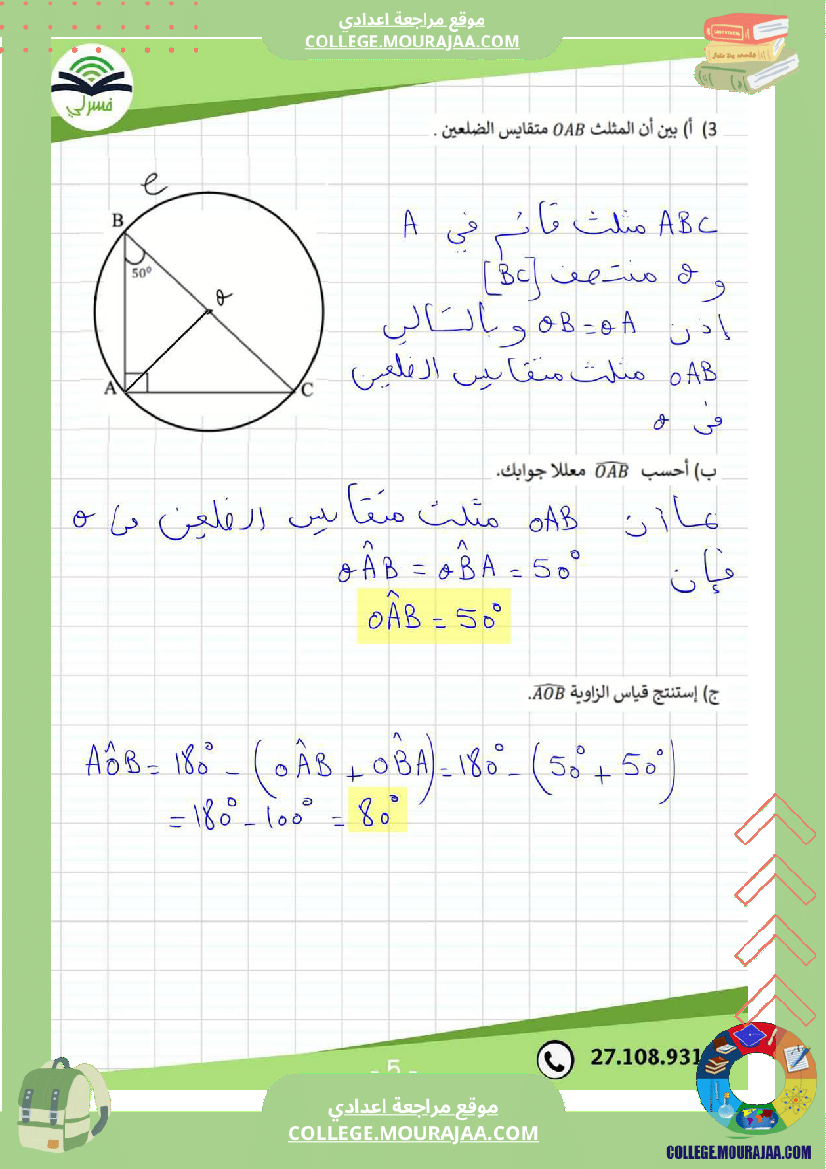 موقع مراجعة اعدادي
COLLEGE.MOURAJAA.COM
فسرلي
3) أ) بين أن المثلث OAB متقايس الضلعين .
e
B
50⁰
O
A
C
ABC مثلث قائم في A
و O منتصف [BC]
إذن OB=OA وبالتالي
OAB مثلث متقايس الضلعين
في O
ب) أحسب OAB̂ معللا جوابك.
بما أن OAB مثلث متقايس الضلعين في O
فإن OÂB = OB̂A = 50°
OÂB = 50°
ج) إستنتج قياس الزاوية AOB̂.
AÔB = 180° - (OÂB + OB̂A) = 180° - (50° + 50°)
= 180° - 100° = 80°
- 5 -
27.108.931
موقع مراجعة اعدادي
COLLEGE.MOURAJAA.COM
COLLEGE.MOURAJAA.COM